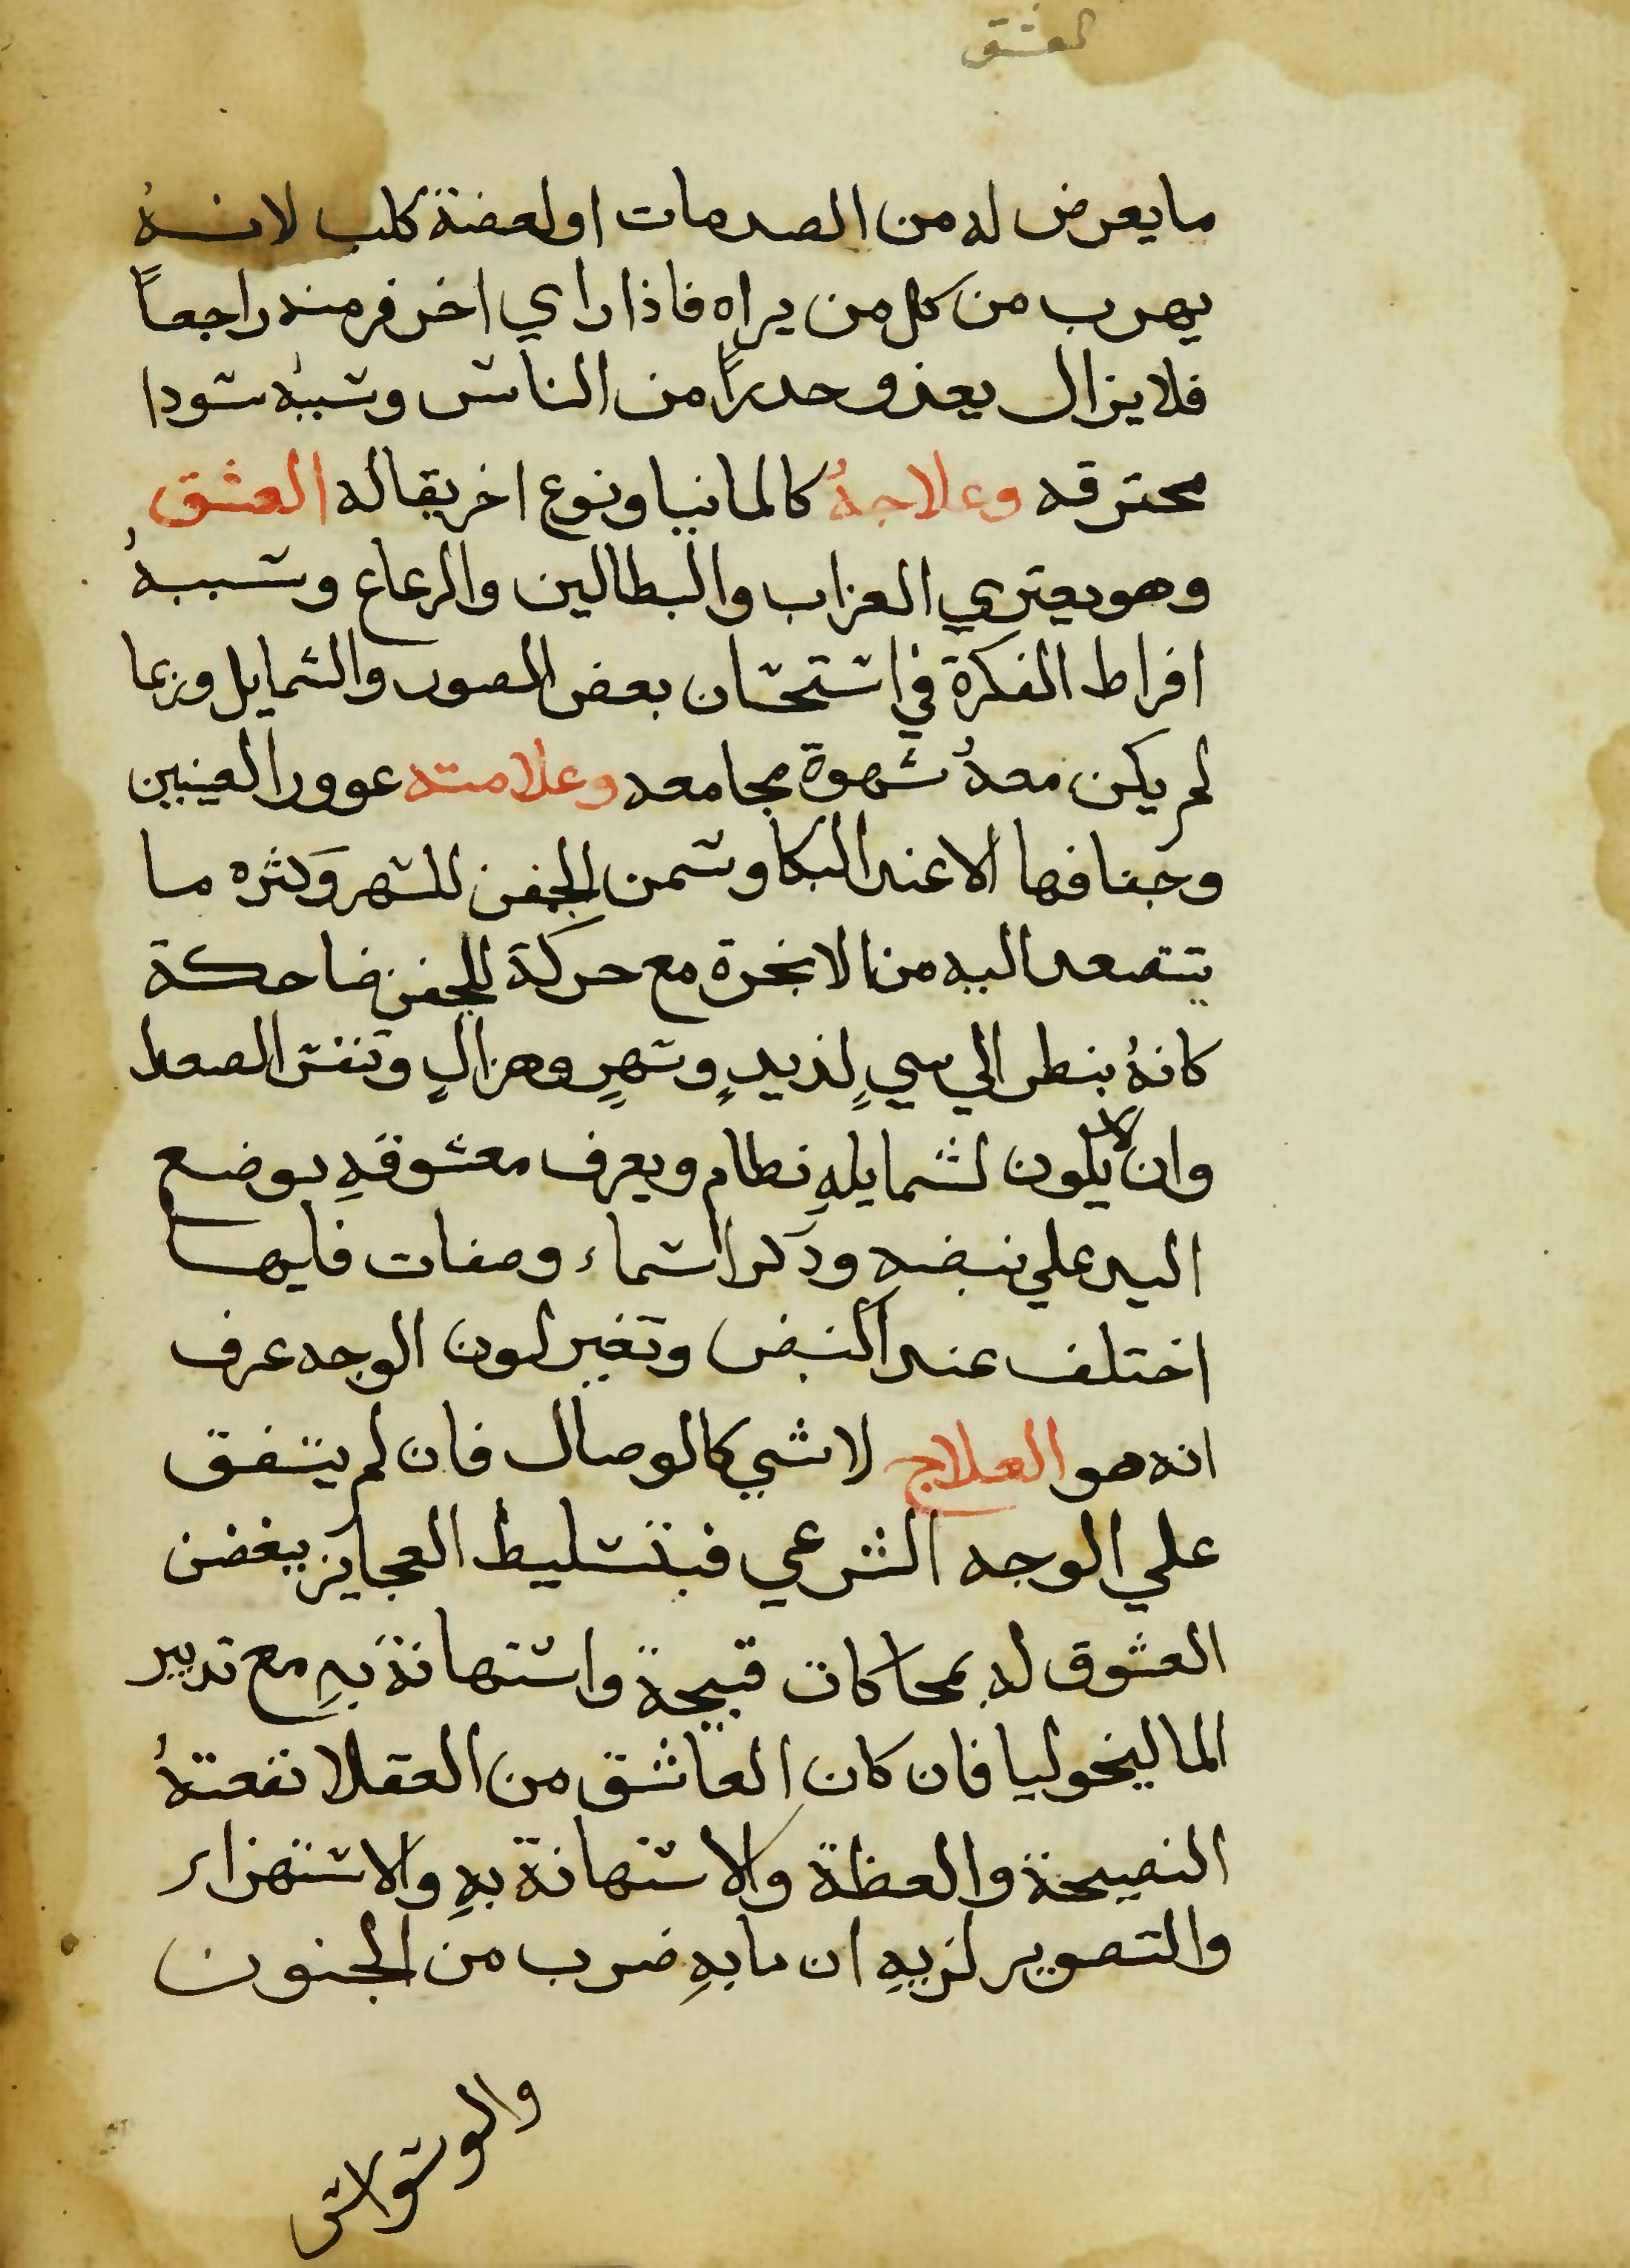 العشق
ما يعرض له من الصدمات او لعضة كلب لانهُ
يهرب من كل من يراه فاذا راي اخر فر منه راجعاً
فلا يزال يعذو حدراً من الناس وسببهُ سودا
محترقه وعلاجهُ كالمانيا ونوع اخر يقاله العشق
وهو يعتري العزاب والبطالين والرعاع وسببهُ
افراط الفكرة في استحسان بعض الصور والشمايل وربما
لم يكن معهُ شهوة مجامعه وعلامته عوور العينين
وجفافها الا عند البكا وسمن الجفن للسهر وكثره ما
يتصعد اليه من الابخرة مع حركة للجفن ضاحكة
كانهُ ينطر الي سيٍ لذيدٍ وسهرٍ وهزالٍ وتنفس الصعدا
وان لا يكون لشمايلهِ نطام ويعرف معشوقهِ بوضع
اليد علي نبضهِ ودكر اسماء وصفات فايها
اختلف عند النبض وتغير لون الوجه عرف
انه هو العلاج لاشي كالوصال فان لم يتفق
علي الوجه الشرعي فبتسليط العجايز يبغضن
العشوق له بمحاكات قبيحة واستهانة بهِ مع تدبير
الماليخوليا فان كان العاشق من العقلا نفعتهُ
النصيحة والعظة والاستهانة بهِ والاستهزاء
والتصوير لزيهِ ان ما بهِ ضرب من الجنون
والوسواس